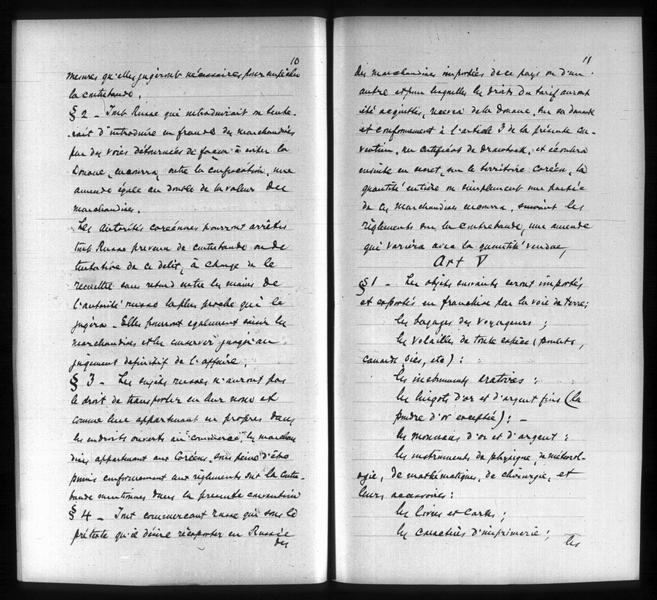 10
mesures qu'elles jugeront nécessaires, pour empêcher
la contrebande.
§ 2 - Tout Russe qui introduirait ou tente-
rait d'introduire en fraude des marchandises
par des voies détournées de façon à éviter la
Douane, encourra, outre la confiscation, une
amende égale au double de la valeur des
marchandises.
Les autorités coréennes pourront arrêter
tout Russe prevenu de contrebande ou de
tentative de ce delit, à charge de le
remettre sans retard entre les mains de
l'autorité russe la plus proche qui le
jugera. Elles pourront egalement saisir les
marchandises et les conserver jusqu'au
jugement definitif de l'affaire.
§ 3 - Les sujets russes n'auront pas
le droit de transporter en leur nom et
comme leur appartenant en propres dans
les endroits ouverts au commerce, les marchan
dises appartenant aux Coréens, sous peine d'être
punis conformement aux règlements sur la contre-
bande mentionnés dans la presente convention
§ 4 - Tout commercant russe qui sous le
prétexte qu'il désire réexporter en Russie
des
11
des marchandises importées de ce pays ou d'un
autre et pour lesquelles les droits du tarif auront
été acquittés, recevra de la Douane, sur sa demande
et conformement à l'article 3 de la présente con-
vention, un certificat de Drawback, et écoulera
ensuite en secret, sur le territoire coréen, la
quantité entière ou simplement une partie
de ces marchandises encourra, suivant les
règlements sur la contrebande, une amende
qui variera avec la quantité vendue,
Art V
§ 1 - Les objets suivants seront importés
et exportés en franchise par la voie de terre;
les bagages des voyageurs ;
les volailles de toute espèce (poulets,
canards oies, etc) :
les instruments aratoires :
les lingots d'or et d'argent fins (la
poudre d'or exceptée) : -
les monnaies d'or et d'argent :
les instruments de physique, de météorol-
ogie, de mathématique, de chirurgie, et
leurs accessoires :
les livres et cartes ;
les caractères d'imprimerie ;
les